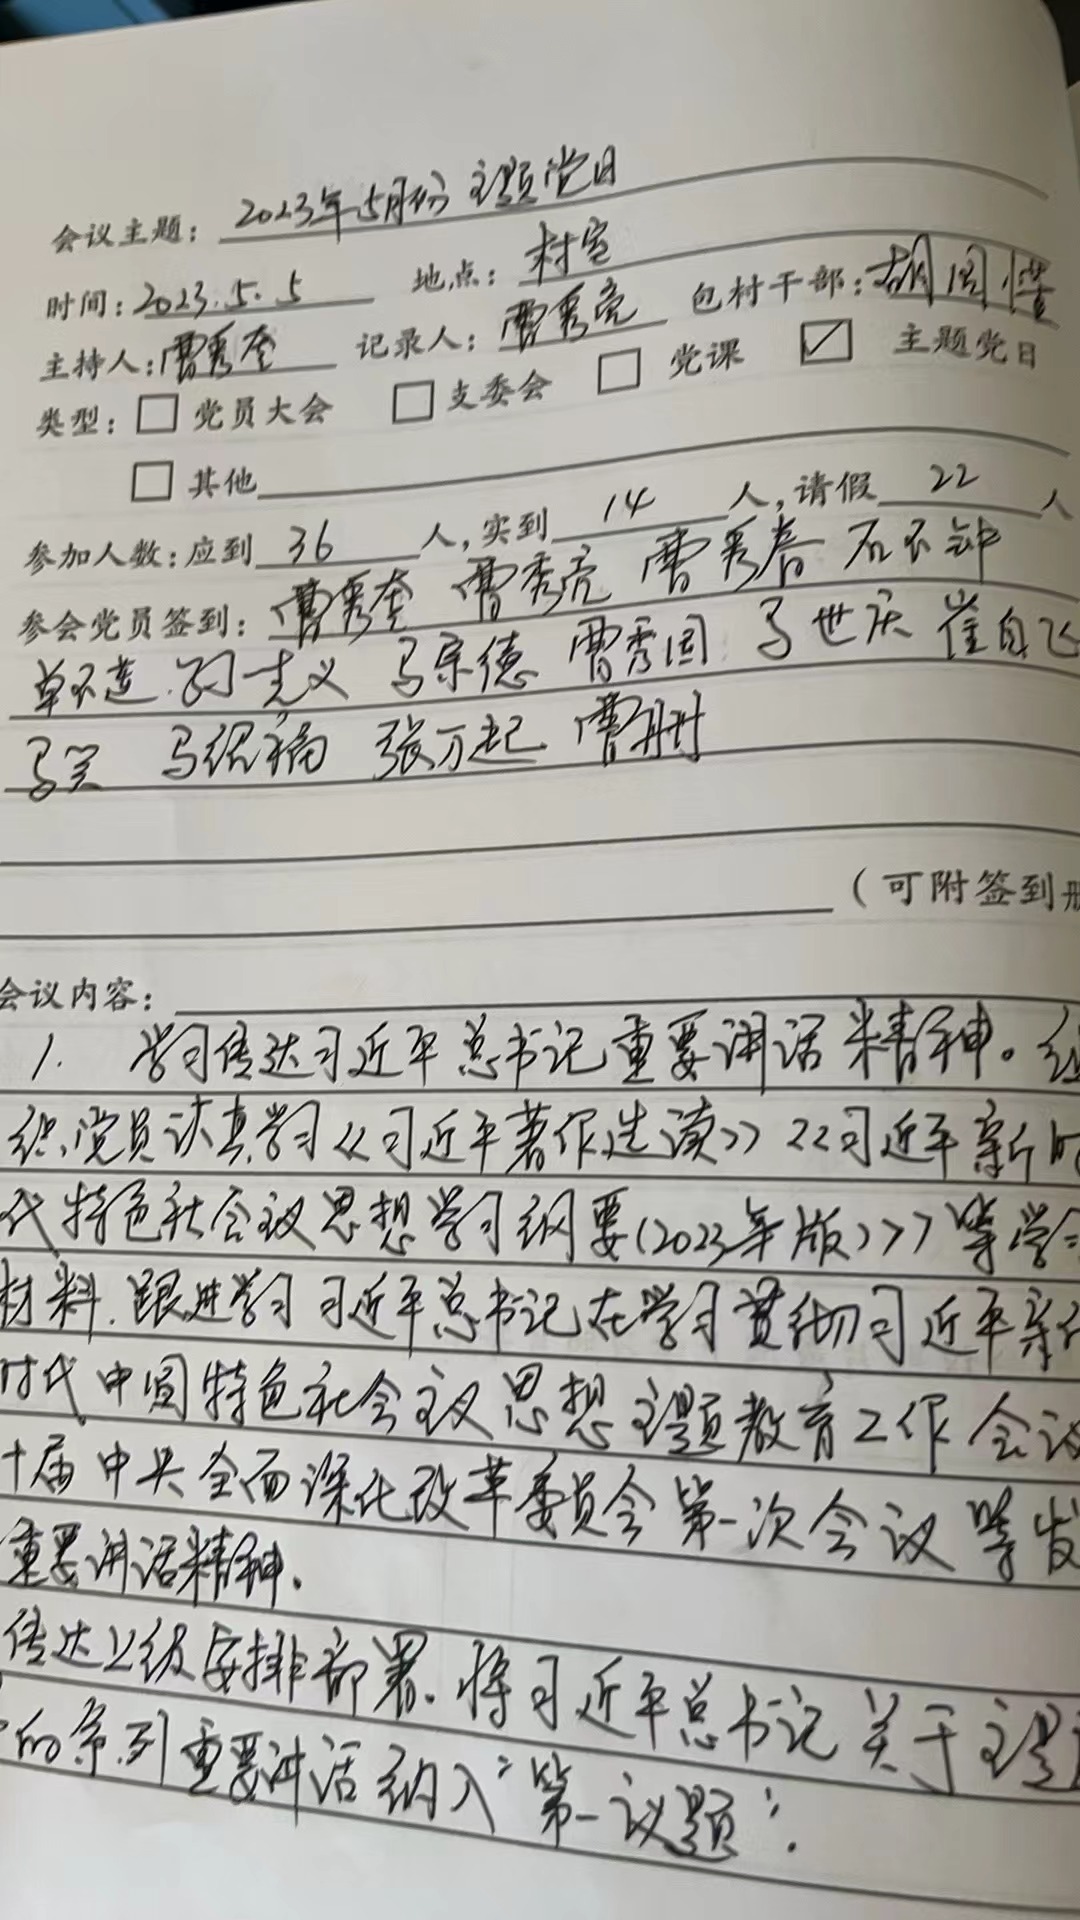 会议主题: 2023年5月份主题党日
时间: 2023.5.5 地点: 村室 包村干部: 胡国
主持人: 曹秀奎 记录人: 曹秀亮
类型: 党员大会 支委会 党课 ☑ 主题党日
其他
参加人数: 应到 36 人, 实到 14 人, 请假 22 人
参会党员签到: 曹秀奎 曹秀亮 曹秀春 石不钟
单不连 马宗德 曹秀国 马世庆 崔自飞
马 张万起 曹
(可附签到册
会议内容:
1. 学习传达习近平总书记重要讲话精神。组
织党员认真学习《习近平著作选读》《习近平新时
代特色社会议思想学习纲要(2023年版)》等学习
材料.跟进学习习近平总书记在学习贯彻习近平新
时代中国特色社会主议思想主题教育工作会议
十届中央全面深化改革委员会第一次会议等发
重要讲话精神.
传达上级安排部署.将习近平总书记关于主题
的系列重要讲话纳入“第一议题”.